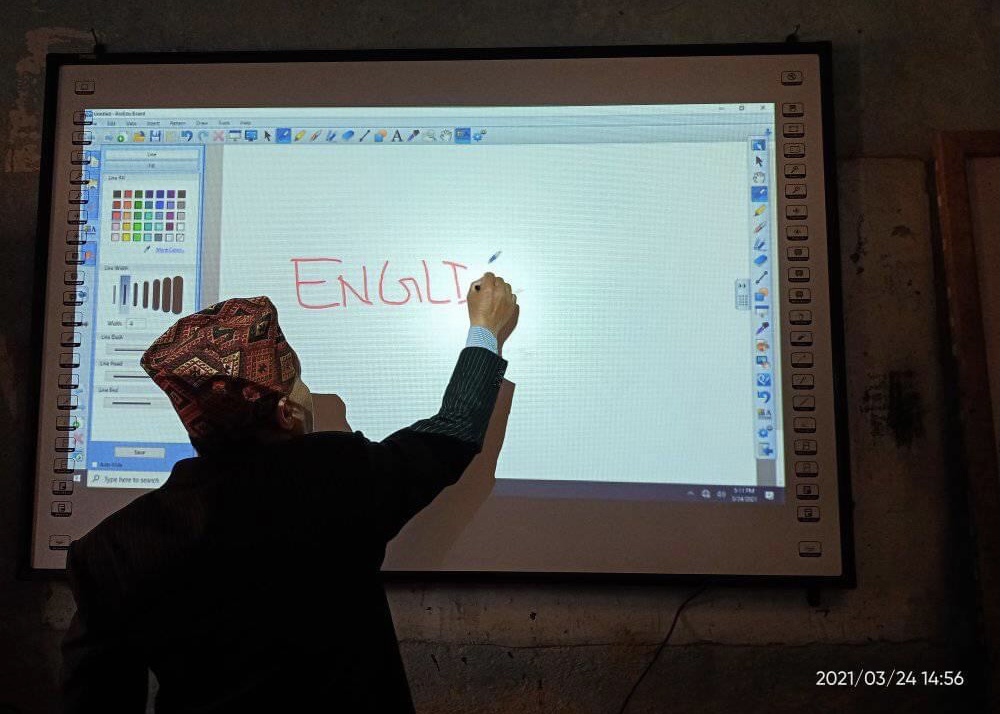 Untitled - Anolite Board
Edit View Insert Pattern Draw Tools Help
Line
Fill
Line Art
More Colors..
ENGLI
Line Width
Width 4
Line Dash
Line Head
Line End
Save
Auto Hide
Type here to search
5:11 PM
3/24/2021
2021/03/24 14:56